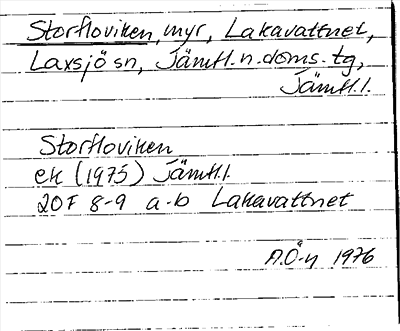 Storfloviken, myr, Lakavattnet,
Laxsjö sn, Jämtl. n. doms. tg,
Jämtl. l.
Storfloviken
ek (1975) Jämtl. l.
20F 8-9 a-b Lakavattnet
A.Ö-n 1976